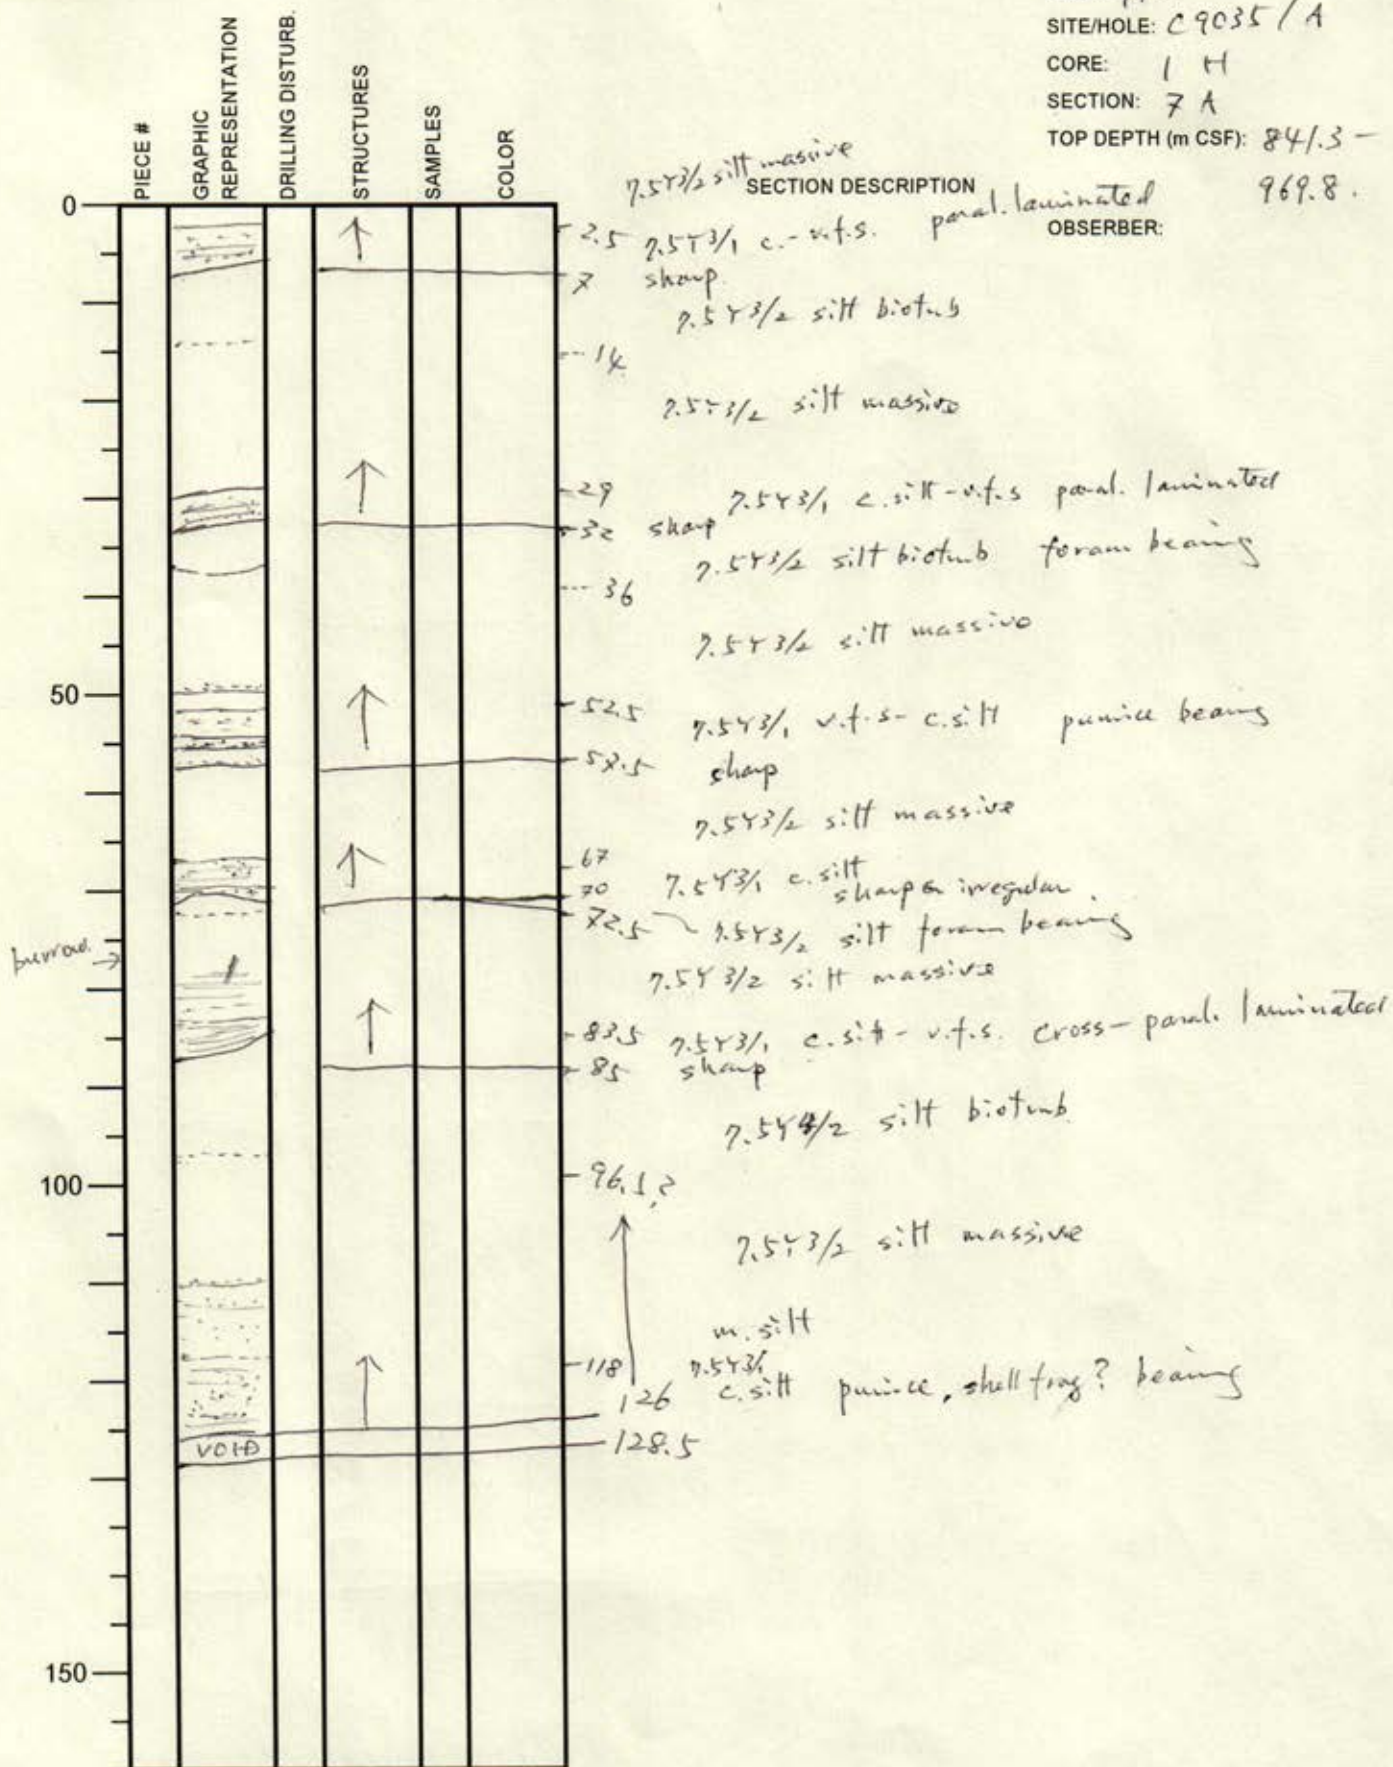 SITE/HOLE: C9035 / A
CORE: 1 H
SECTION: 7 A
TOP DEPTH (m CSF): 841.3 -
969.8.
PIECE #
GRAPHIC REPRESENTATION
DRILLING DISTURB.
STRUCTURES
SAMPLES
COLOR
SECTION DESCRIPTION
OBSERBER:
7.5Y3/2 silt massive
0
2.5 7.5Y3/1 c.-v.f.s. paral. laminated
7 sharp
7.5Y3/2 silt bioturb
14
7.5Y3/2 silt massive
29 7.5Y3/1 c.silt-v.f.s paral. laminated
32 sharp
7.5Y3/2 silt bioturb foram bearing
36
7.5Y3/2 silt massive
50
52.5 7.5Y3/1 v.f.s-c.silt pumice bearing
57.5 sharp
7.5Y3/2 silt massive
67
7.5Y3/1 c.silt
70 sharp & irregular
72.5 7.5Y3/2 silt foram bearing
burrow
7.5Y3/2 silt massive
83.5 7.5Y3/1 c.silt-v.f.s. cross-paral. laminated
85 sharp
7.5Y4/2 silt bioturb
100
96.1?
7.5Y3/2 silt massive
m. silt
118 7.5Y3/1
126 c.silt pumice, shell frag? bearing
VOID
128.5
150